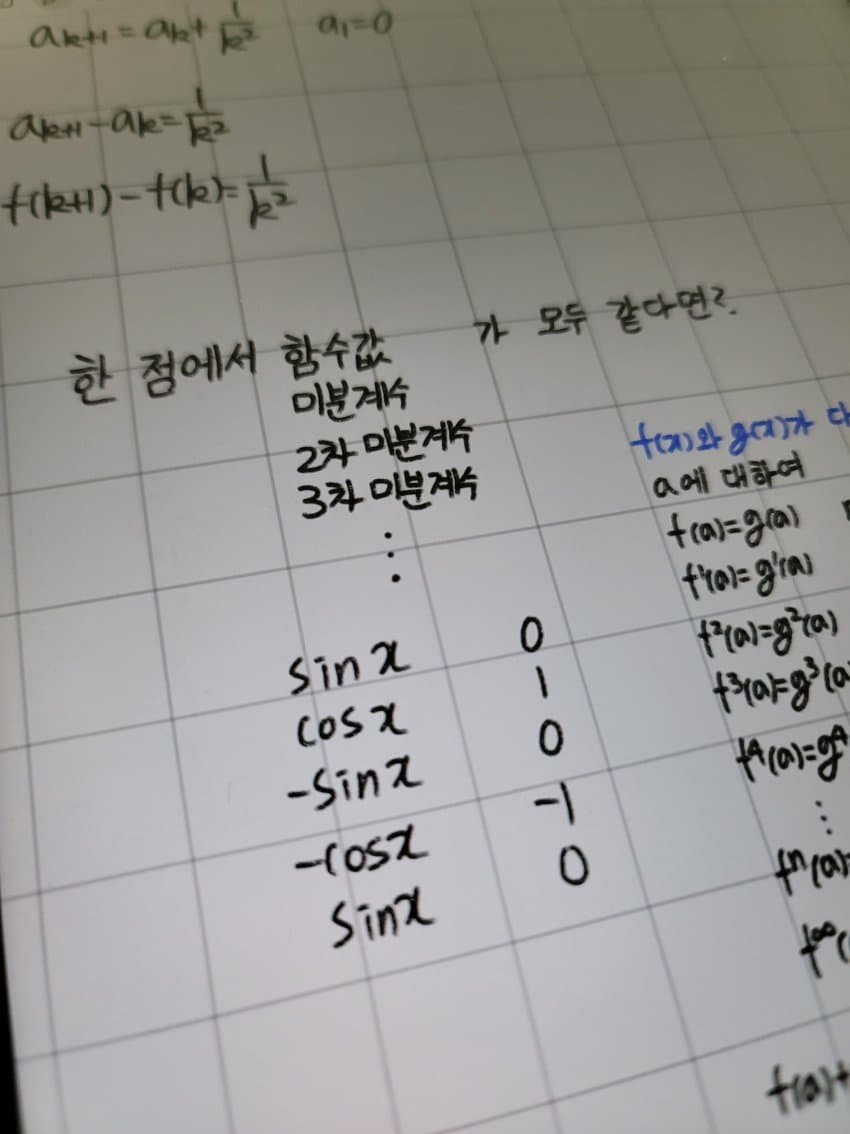 aₖ₊₁ = aₖ + 1/k² a₁=0
aₖ₊₁ - aₖ = 1/k²
f(k+1) - f(k) = 1/k²
한 점에서 함수값 가 모두 같다면?
미분계수
2차 미분계수
3차 미분계수
⋮
sin x 0
cos x 1
-sin x 0
-cos x -1
sin x 0
f(x)와 g(x)가
a에 대하여
f(a)=g(a)
f'(a)=g'(a)
f²(a)=g²(a)
f³(a)=g³(a
f⁴(a)=g⁴
⋮
fⁿ(a)
f^∞(
f(a)+